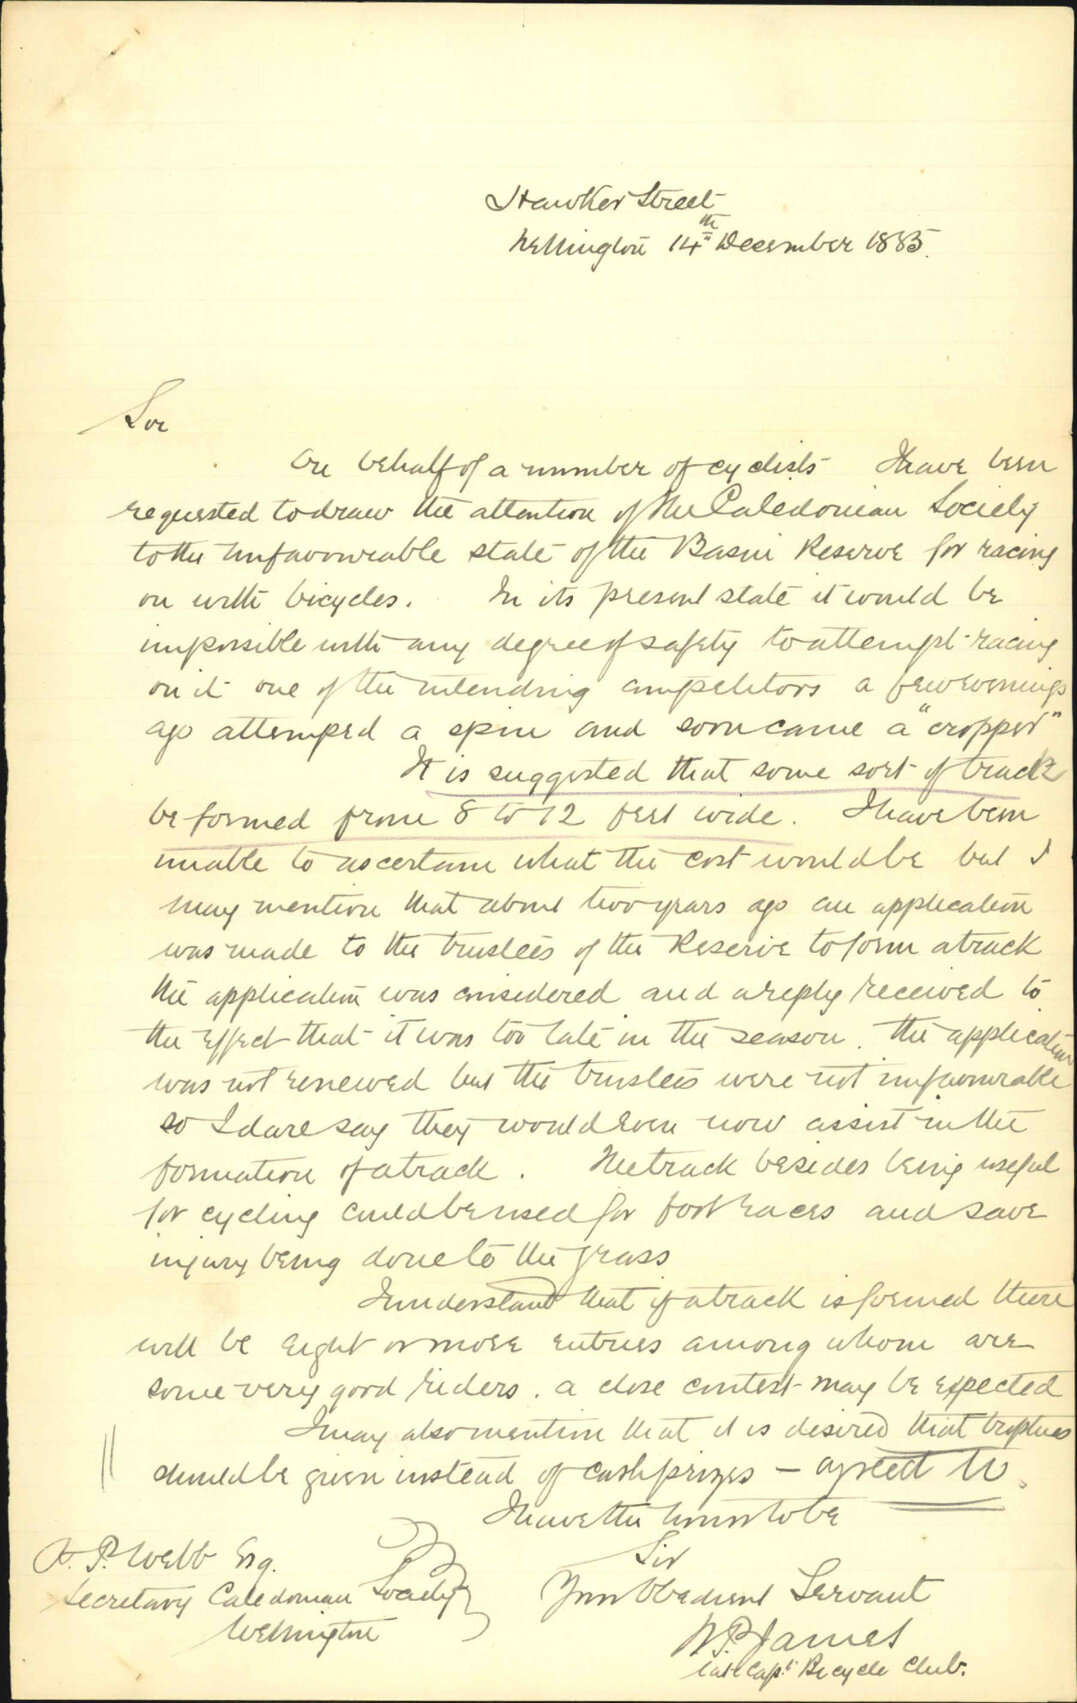 Hawker Street
Wellington 14th December 1885.
Sir
On behalf of a number of cyclists I have been
requested to draw the attention of the Caledonian Society
to the unfavourable state of the Basin Reserve for racing
on with bicycles. In its present state it would be
impossible with any degree of safety to attempt racing
on it one of the intending competitors a few evenings
ago attempted a spin and soon came a "cropper"
It is suggested that some sort of track
be formed from 8 to 12 feet wide. I have been
unable to ascertain what the cost would be but I
may mention that about two years ago an application
was made to the trustees of the Reserve to form a track
the application was considered and a reply received to
the effect that it was too late in the season. The application
was not renewed but the trustees were not unfavourable
so I dare say they would even now assist in the
formation of a track. The track besides being useful
for cycling could be used for foot races and save
injury being done to the grass
I understand that if a track is formed there
will be eight or more entries among whom are
some very good riders. a close contest may be expected
I may also mention that it is desired that trophies
should be given instead of cash prizes – agreed to.
I have the honor to be
Sir
Your Obedient Servant
W.P. James
late Capt. Bicycle Club.
P. Webb Esq.
Secretary Caledonian Society
Wellington